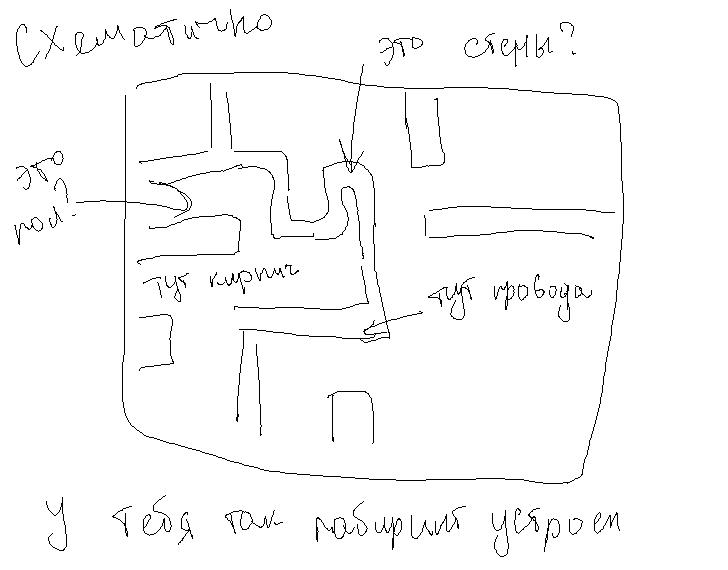 Схематично
это стены?
это
пол?
тут кирпич
тут провода
У тебя так лабиринт устроен